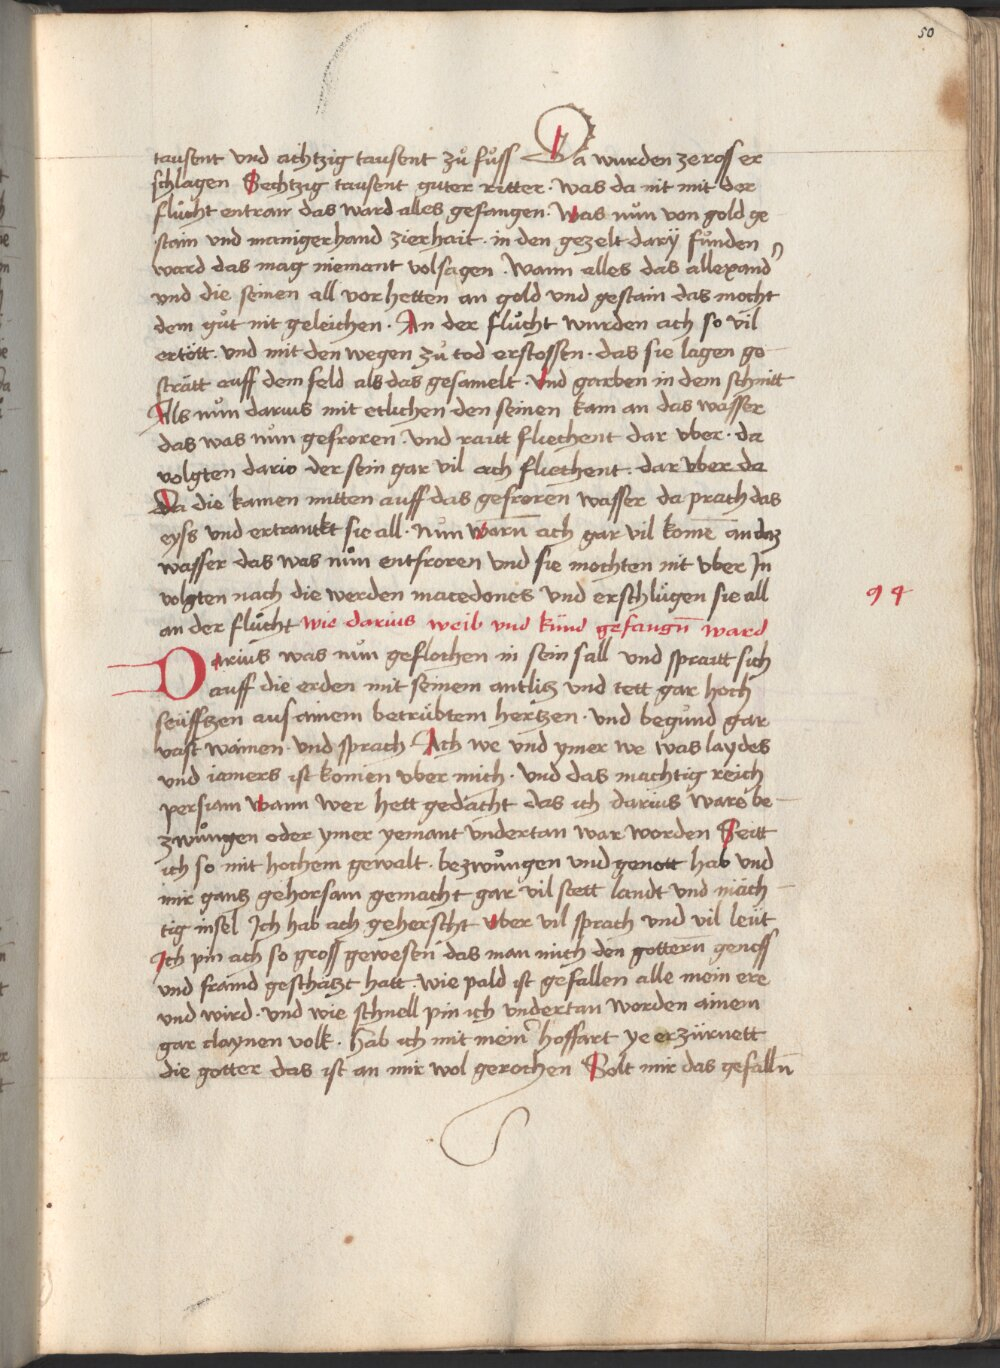 50
tausent vnd achtzig tausent zů fůss Da wurden ze ross er
schlagen Sechtzig tausent guter ritter · was da nit mit der
flůcht entran das ward alles gefangen · Was nůn von gold ge
stain vnd maniger hand zierhait · in den gezelt darÿ fůnden
ward das mag niemant volsagen · Wann alles das allexand᾿
vnd die seinen all vor hetten an gold vnd gestain das mocht
dem gůt nit geleichen · An der flůcht wurden ach so vil
ertött · vnd mit den wegen zů tod erstossen · das sie lagen ge
strätt auff dem feld als das gesamelt · Vnd garben in dem schnitt
Als nůn darius mit etlichen den seinen kam an das wasser
das was nůn gefroren · vnd raitt fliechent dar vber · da
volgten dario der sein gar vil ach fliechent · dar vber da
Da die kamen mitten auff das gefroren wasser da prach das
eyss vnd ertranckt sie all · nůn warn̄ ach gar vil komē an daz
wasser das was nůn entfroren vnd sie mochten nit vber In
volgten nach die werden macedones vnd erschlůgen sie all
94
an der flůcht wie darius weib vnd kind gefangn̄ ward
Darius was nůn geflochen in sein sall vnd spraitt sich
auff die erden mit seinem antlitz vnd tett gar hoch
seüfftzen aus ainem betrübtem hertzen · vnd begůnd gar
vast wainen · vnd sprach Ach we vnd ymer we was laydes
vnd iamers ist komen vber mich · vnd das machtig reich
persiam wann wer hett gedacht das ich darius ware be
zwůngen oder ymer yemant vndertan war worden Seitt
ich so mit hochem gewalt · bezwůngen vnd genott hab vnd
mir gantz gehorsam gemacht gar vil stett landt vnd mäch
tig insel Ich hab ach geherscht vber vil sprach vnd vil leüt
Ich pin ach so gross gewesen das man mich den gottern genoss
vnd framd geschätzt hatt · wie pald ist gefallen alle mein ere
vnd wird · vnd wie schnell pin ich vndertan worden ainem
gar claynen volk · hab ich mit mein᾿ hoffart ye erzürnett
die gotter das ist an mir wol gerochen Solt mir das gefalln̄